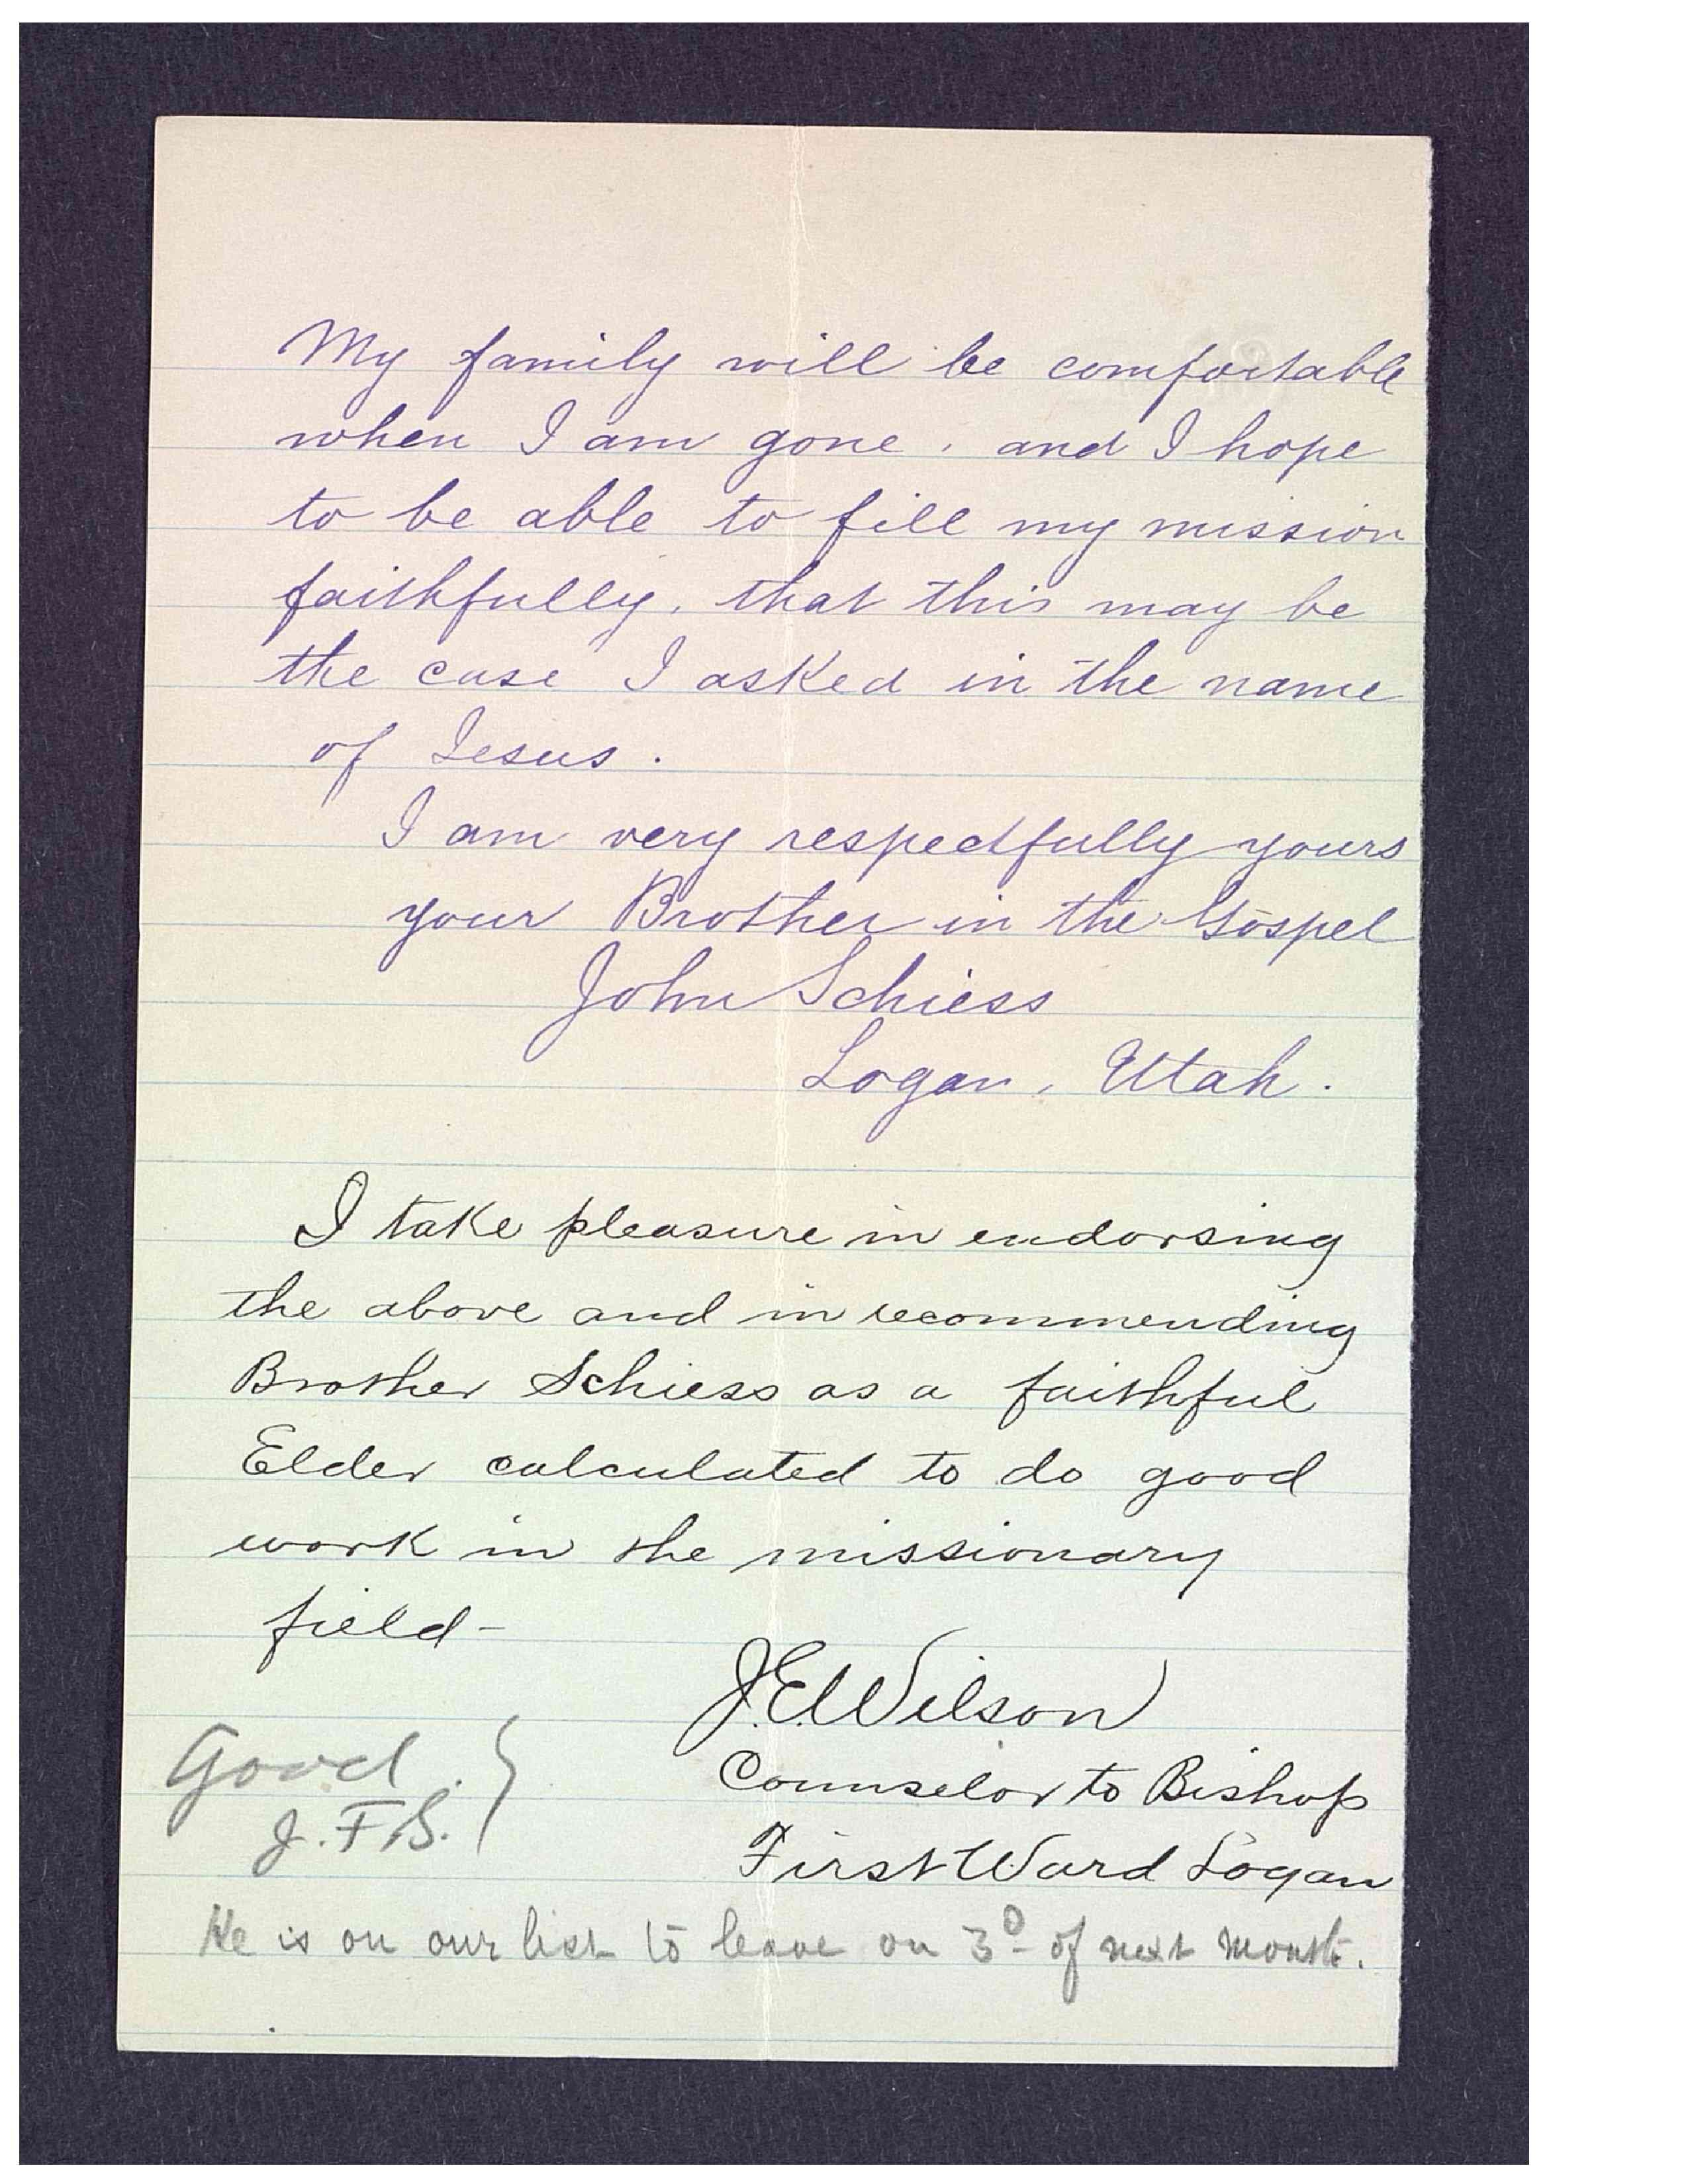 My family will be comfortable
when I am gone, and I hope
to be able to fill my mission
faithfully, that this may be
the case I asked in the name
of Jesus.
I am very respectfully yours
your Brother in the Gospel
John Schiess
Logan, Utah.
I take pleasure in endorsing
the above and in recommending
Brother Schiess as a faithful
Elder calculated to do good
work in the missionary
field-
J.E. Wilson
Counselor to Bishop
First Ward Logan
Good.
J.F.S.
He is on our list to leave on 3d of next month.